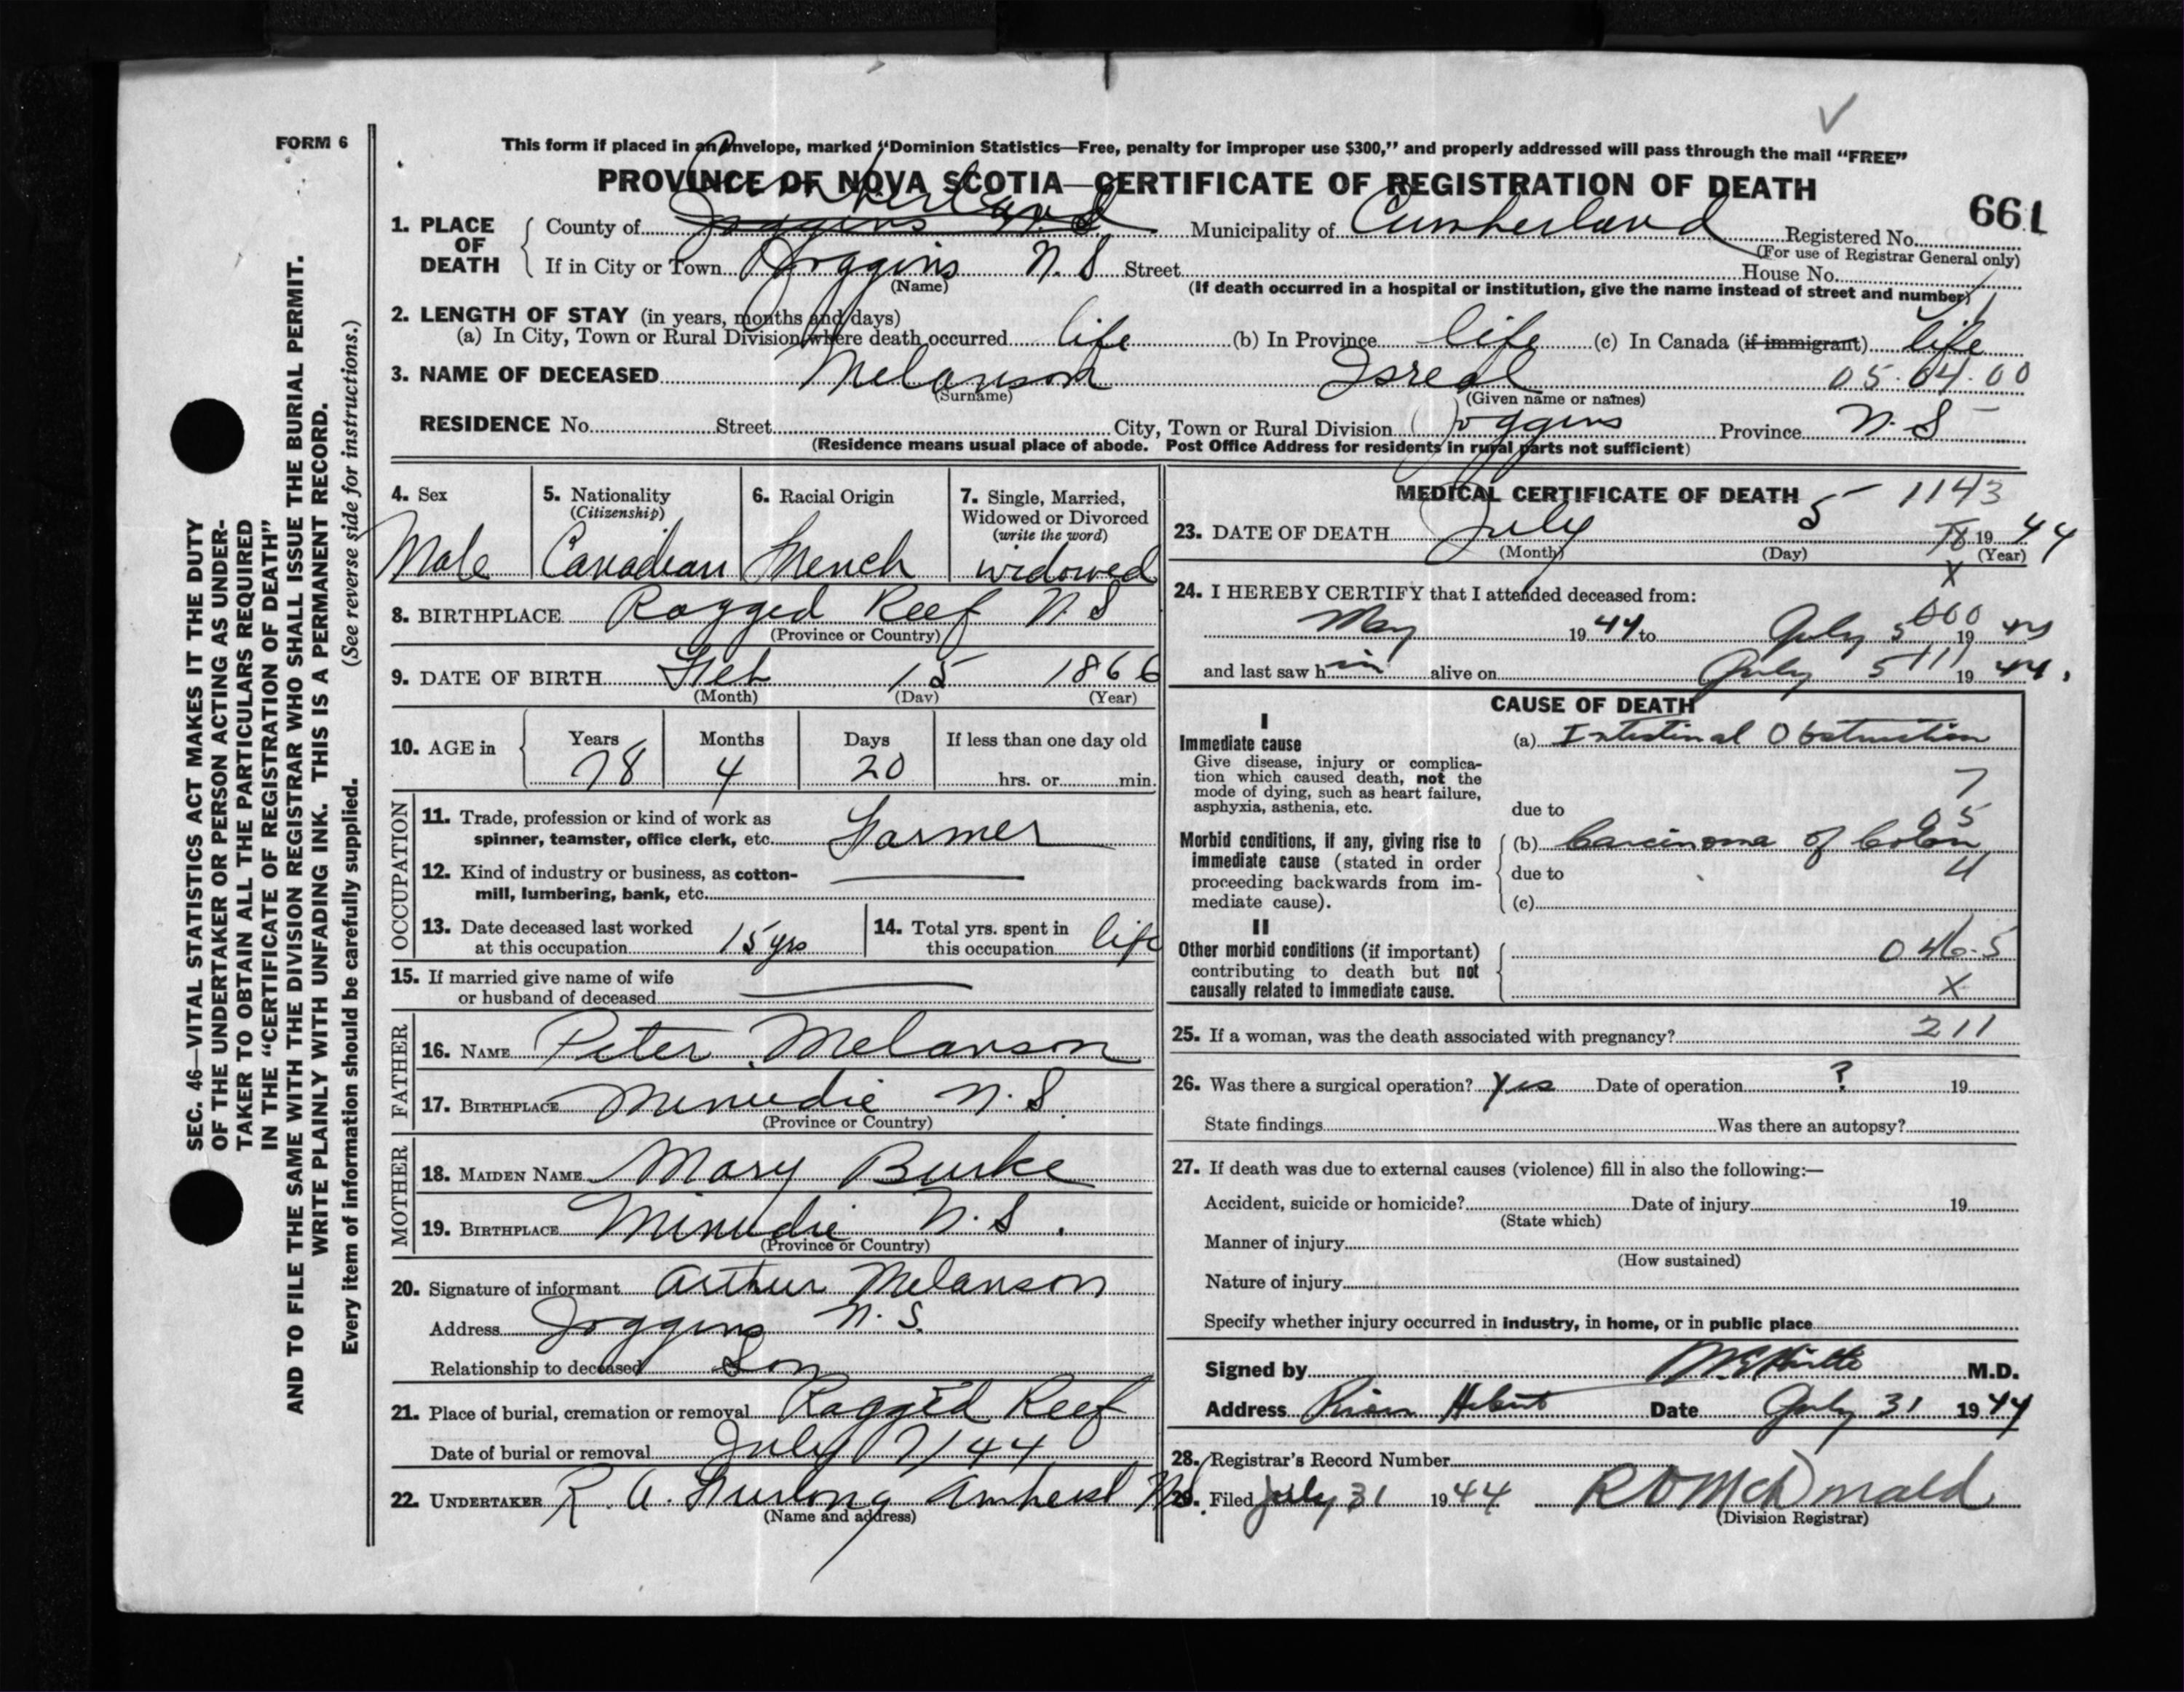 FORM 6
This form if placed in an envelope, marked "Dominion Statistics—Free, penalty for improper use $300," and properly addressed will pass through the mail "FREE"
PROVINCE OF NOVA SCOTIA—CERTIFICATE OF REGISTRATION OF DEATH
661
1. PLACE OF DEATH
County of Cumberland Joggins N.S. Municipality of Cumberland Registered No.
(For use of Registrar General only)
If in City or Town Joggins N.S Street House No.
(Name) (If death occurred in a hospital or institution, give the name instead of street and number)
2. LENGTH OF STAY (in years, months and days)
(a) In City, Town or Rural Division where death occurred life (b) In Province life (c) In Canada (if immigrant) life
3. NAME OF DECEASED Melanson Isreal 05.04.00
(Surname) (Given name or names)
RESIDENCE No. Street City, Town or Rural Division Joggins Province N.S
(Residence means usual place of abode. Post Office Address for residents in rural parts not sufficient)
4. Sex
Male
5. Nationality
(Citizenship)
Canadian
6. Racial Origin
French
7. Single, Married,
Widowed or Divorced
(write the word)
widowed
8. BIRTHPLACE Ragged Reef N.S
(Province or Country)
9. DATE OF BIRTH Feb 15 1866
(Month) (Day) (Year)
10. AGE in
Years Months Days If less than one day old
78 4 20 hrs. or min.
OCCUPATION
11. Trade, profession or kind of work as
spinner, teamster, office clerk, etc. Farmer
12. Kind of industry or business, as cotton-
mill, lumbering, bank, etc.
13. Date deceased last worked
at this occupation 15 yrs
14. Total yrs. spent in
this occupation life
15. If married give name of wife
or husband of deceased
FATHER
16. NAME Peter Melanson
17. BIRTHPLACE Minudie N.S.
(Province or Country)
MOTHER
18. MAIDEN NAME Mary Burke
19. BIRTHPLACE Minudie N.S.
(Province or Country)
20. Signature of informant Arthur Melanson
Address Joggins N.S.
Relationship to deceased Son
21. Place of burial, cremation or removal Ragged Reef
Date of burial or removal July 7/44
22. UNDERTAKER R. A. Furlong Amherst NS
(Name and address)
MEDICAL CERTIFICATE OF DEATH
1143
23. DATE OF DEATH July 5 78 1944
(Month) (Day) (Year)
X
24. I HEREBY CERTIFY that I attended deceased from:
000
May 1944 to July 5 1944
and last saw him alive on July 5 111 1944.
CAUSE OF DEATH
I
Immediate cause
Give disease, injury or complica-
tion which caused death, not the
mode of dying, such as heart failure,
asphyxia, asthenia, etc.
(a) Intestinal Obstruction
7
due to
05
Morbid conditions, if any, giving rise to
immediate cause (stated in order
proceeding backwards from im-
mediate cause).
(b) Carcinoma of Colon
due to 4
(c)
II
Other morbid conditions (if important)
contributing to death but not
causally related to immediate cause.
046.5
X
25. If a woman, was the death associated with pregnancy? 211
26. Was there a surgical operation? Yes Date of operation ? 19
State findings Was there an autopsy?
27. If death was due to external causes (violence) fill in also the following:—
Accident, suicide or homicide? Date of injury 19
(State which)
Manner of injury
(How sustained)
Nature of injury
Specify whether injury occurred in industry, in home, or in public place
Signed by M.D.
Address River Hebert Date July 31 1944
28. Registrar's Record Number
29. Filed July 31 1944 R D McDonald
(Division Registrar)
SEC. 46—VITAL STATISTICS ACT MAKES IT THE DUTY
OF THE UNDERTAKER OR PERSON ACTING AS UNDER-
TAKER TO OBTAIN ALL THE PARTICULARS REQUIRED
IN THE "CERTIFICATE OF REGISTRATION OF DEATH"
AND TO FILE THE SAME WITH THE DIVISION REGISTRAR WHO SHALL ISSUE THE BURIAL PERMIT.
WRITE PLAINLY WITH UNFADING INK. THIS IS A PERMANENT RECORD.
Every item of information should be carefully supplied. (See reverse side for instructions.)